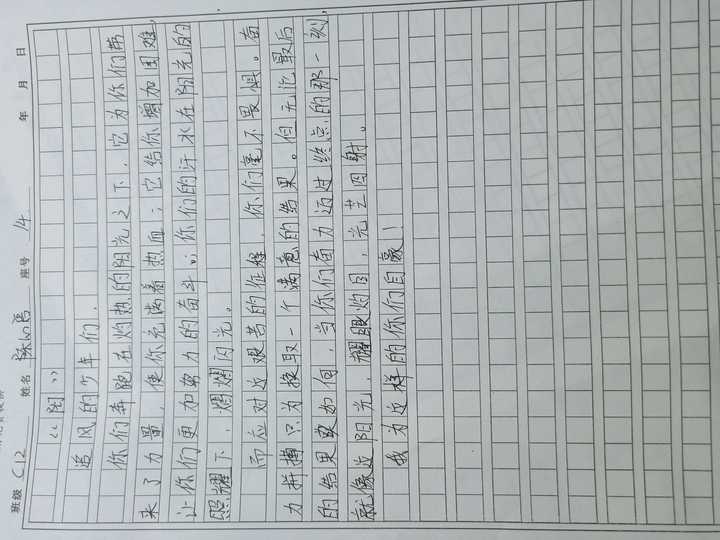 年 月 日
班级 C12 姓名 座号 14
《阳》
追风的少年们，
你们奔跑在灼热的阳光之下，它为你们带
来了力量，使你充满着热血；它给你增加困难，
让你们更加努力的奋斗；你们的汗水在阳光的
照耀下，熠熠闪光。
而应对这艰苦的征程，你们毫不畏惧。奋
力拼搏只为换取一个满意的结果。但无论最后
的结果要如何，当你们奋力迈过终点的那一刻，
就像这阳光，耀眼灼目，光芒四射。
我为这样的你们自豪！